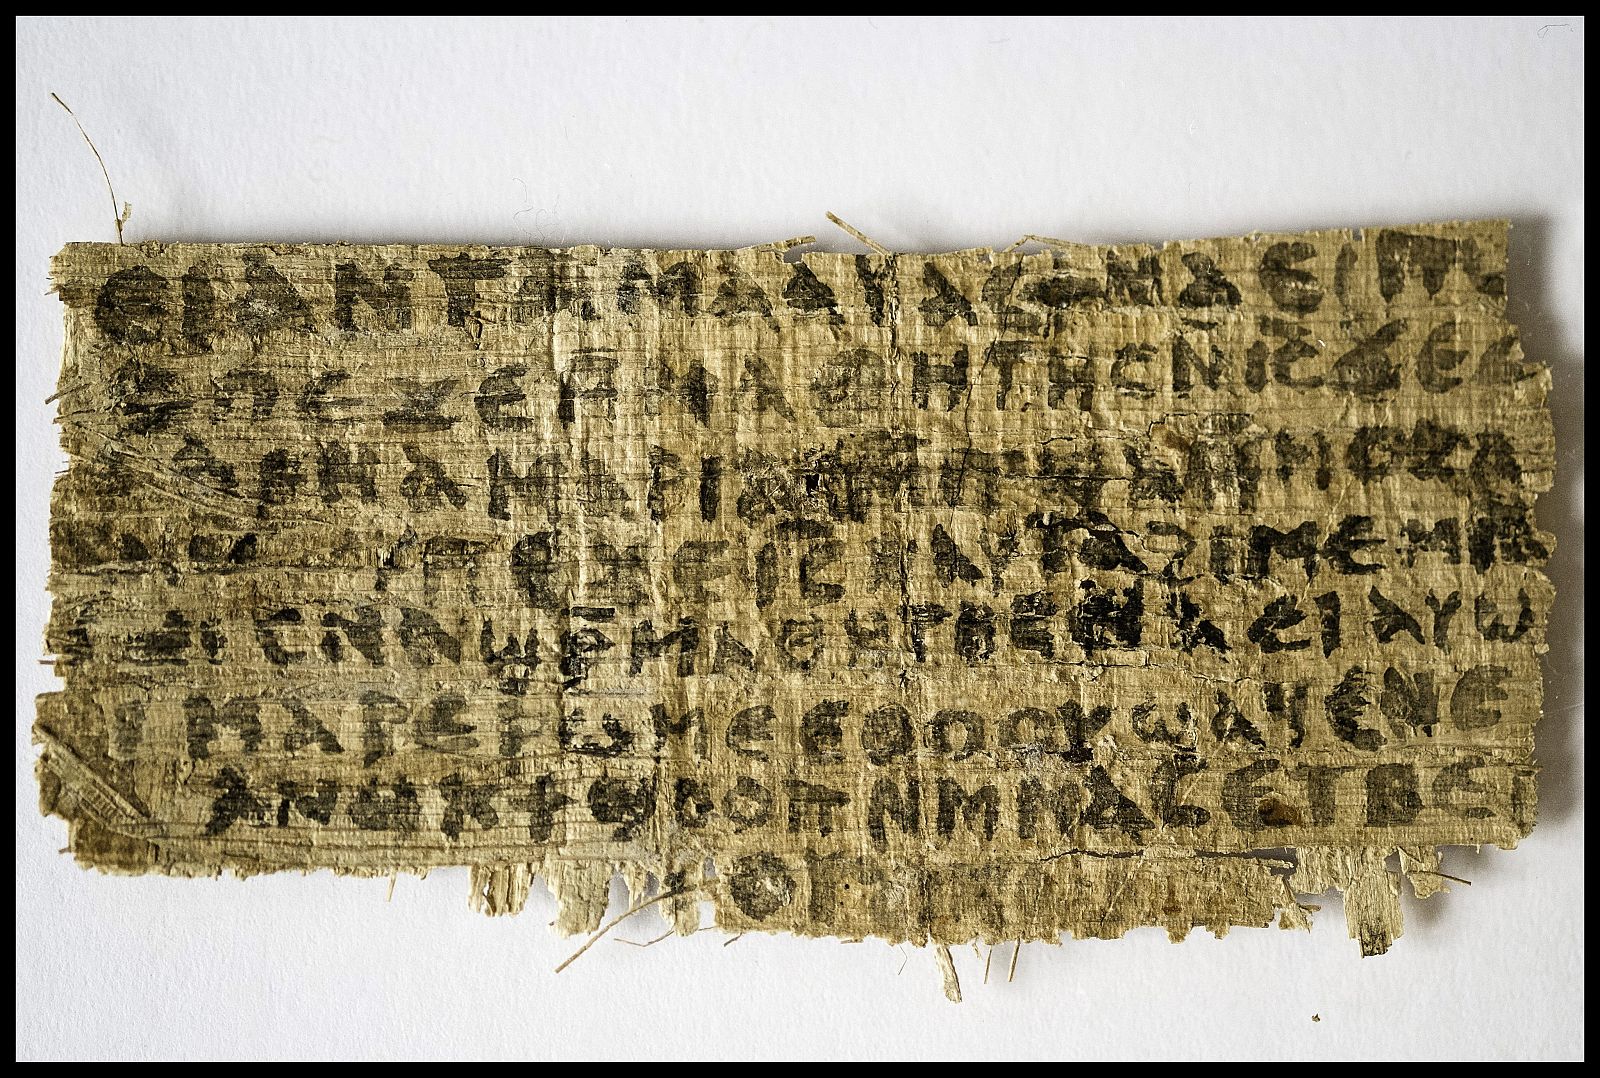 ⲉⲓ ⲁⲛ ⲧⲁⲙⲁⲁⲩ ⲁⲥϯ ⲛⲁⲉⲓ ⲡⲱ
ⲥ ⲡⲉϫⲉ ⲙⲙⲁⲑⲏⲧⲏⲥ ⲛⲓⲥ ϫⲉ ⲥ
ⲁⲣⲛⲁ ⲙⲁⲣⲓⲁⲙ ⲙⲡϣⲁ ⲙⲙⲟⲥ ⲁ
ⲡⲉϫⲉ ⲓⲥ ⲛⲁⲩ ⲧⲁϩⲓⲙⲉ ⲙⲛ
ⲥⲛⲁϣⲣⲙⲁⲑⲏⲧⲏⲥ ⲛⲁⲉⲓ ⲁⲩⲱ
ⲓ ⲙⲁⲣⲉⲣⲱⲙⲉ ⲉⲑⲟⲟⲩ ϣⲁϥⲉ ⲛⲉ
ⲁⲛⲟⲕ ϯϣⲟⲟⲡ ⲛⲙⲙⲁⲥ ⲉⲧⲃⲉ ⲡ